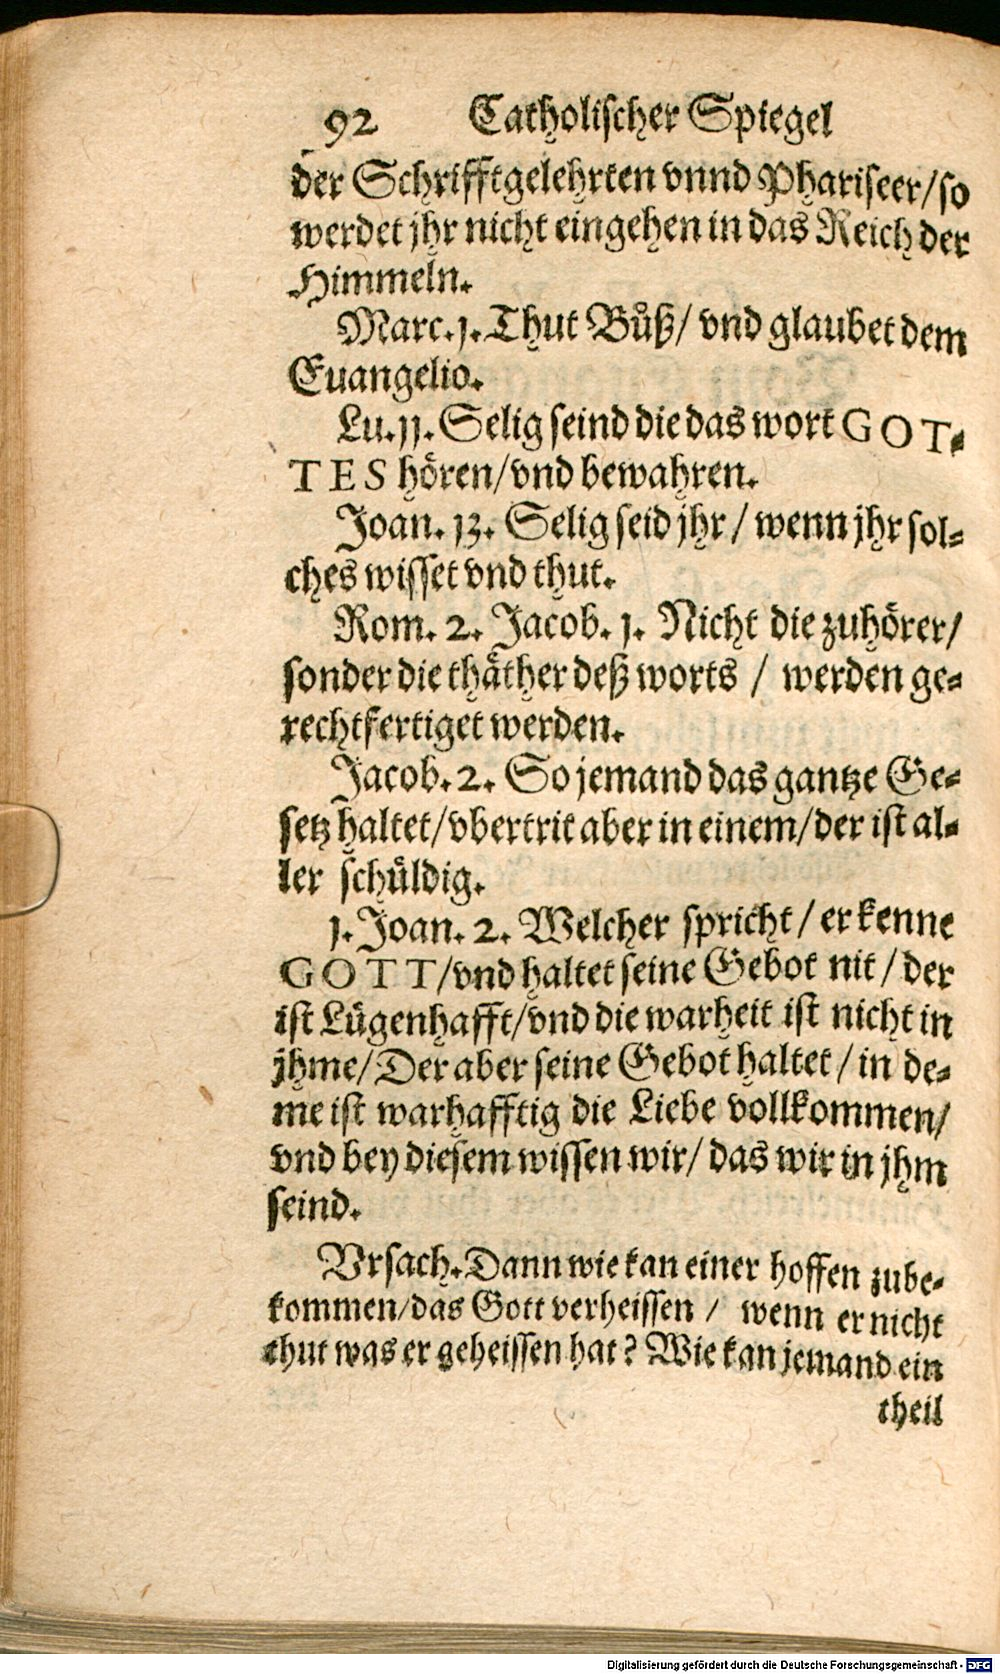 92 Catholischer Spiegel
der Schrifftgelehrten vnnd Phariseer/so
werdet jhr nicht eingehen in das Reich der
Himmeln.
Marc. 1. Thut Bůß/ vnd glaubet dem
Euangelio.
Lu. 11. Selig seind die das wort GOT⸗
TES hören/vnd bewahren.
Joan. 13. Selig seid jhr / wenn jhr sol⸗
ches wisset vnd thut.
Rom. 2. Jacob. 1. Nicht die zuhörer/
sonder die thäther deß worts / werden ge⸗
rechtfertiget werden.
Jacob. 2. So jemand das gantze Ge⸗
setz haltet/vbertrit aber in einem/der ist al⸗
ler schüldig.
1. Joan. 2. Welcher spricht / er kenne
GOTT/vnd haltet seine Gebot nit / der
ist Lügenhafft/vnd die warheit ist nicht in
jhme/ Der aber seine Gebot haltet / in de⸗
me ist warhafftig die Liebe vollkommen/
vnd bey diesem wissen wir/ das wir in jhm
seind.
Vrsach. Dann wie kan einer hoffen zube⸗
kommen/das Gott verheissen / wenn er nicht
thut was er geheissen hat? Wie kan jemand ein
theil
Digitalisierung gefördert durch die Deutsche Forschungsgemeinschaft - DFG